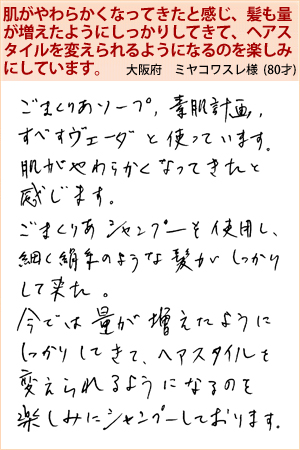 肌がやわらかくなってきたと感じ、髪も量
が増えたようにしっかりしてきて、ヘアス
タイルを変えられるようになるのを楽しみ
にしています。 大阪府 ミヤコワスレ様 (80才)
ごまくりあソープ, 素肌計画,
すべすヴェーダ と使っています。
肌がやわらかくなってきたと
感じます。
ごまくりあ シャンプーを使用し、
細く絹糸のような髪がしっかり
して来た。
今では量が増えたように
しっかりしてきて、ヘアスタイルを
変えられるようになるのを
楽しみにシャンプーしております.